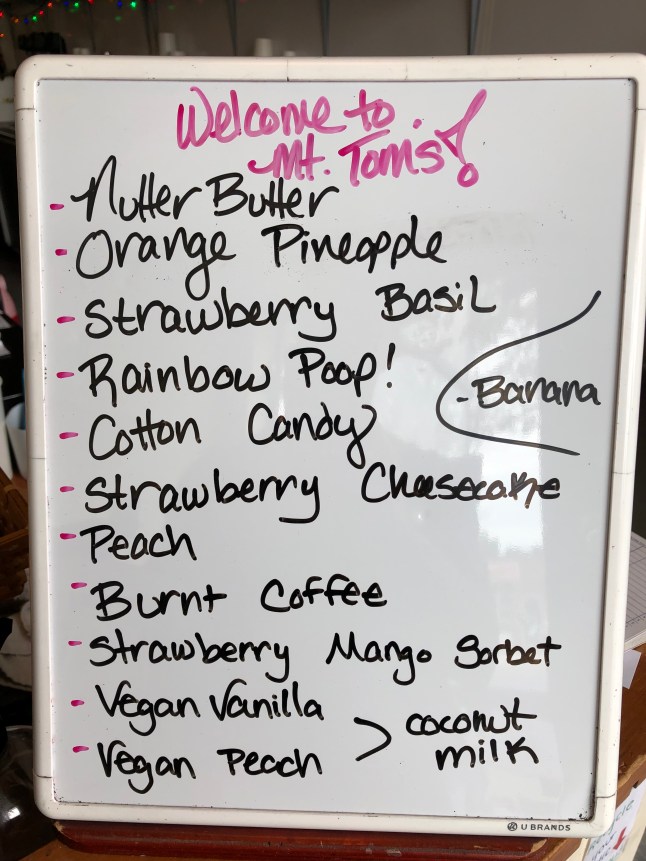 Welcome to
Mt. Toms!
- Nutter Butter
- Orange Pineapple
- Strawberry Basil
- Rainbow Poop!
- Banana
- Cotton Candy
- Strawberry Cheesecake
- Peach
- Burnt Coffee
- Strawberry Mango Sorbet
- Vegan Vanilla
- Vegan Peach
> coconut
milk
U BRANDS